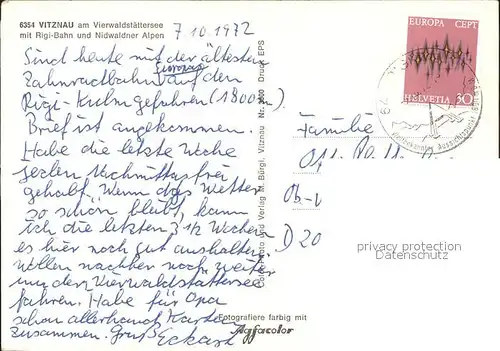 6354 VITZNAU am Vierwaldstättersee
mit Rigi-Bahn und Nidwaldner Alpen
7.10.1972
Sind heute mit der ältesten
Europas
Zahnradbahn auf den
Rigi-Kulm gefahren (1800 m).
Brief ist angekommen.
Habe die letzte Woche
jeden Nachmittag frei
gehabt. Wenn das Wetter
so schön bleibt, kann
ich die letzten 3 1/2 Wochen
es hier noch gut aushalten.
Wollen nachher noch weiter
um den Vierwaldstättersee
fahren. Habe für Opa
schon allerhand Karten
zusammen. Gruß Eckart
Colorphoto und Verlag M. Bürgi, Vitznau Nr. Druck EPS
EUROPA CEPT
HELVETIA 30
Familie
D 20
privacy protection
Datenschutz
Fotografiere farbig mit
Agfacolor